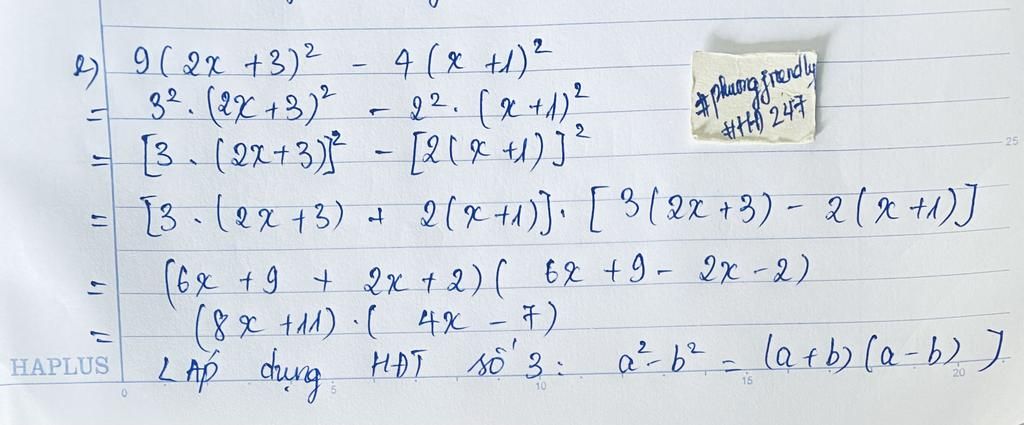 e) 9(2x + 3)² - 4(x + 1)²
= 3² . (2x + 3)² - 2² . (x + 1)²
= [3 . (2x + 3)]² - [2(x + 1)]²
= [3 . (2x + 3) + 2(x + 1)] . [3(2x + 3) - 2(x + 1)]
= (6x + 9 + 2x + 2)( 6x + 9 - 2x - 2)
= (8x + 11) . ( 4x - 7)
[Áp dụng HĐT số 3 : a² - b² = (a + b)(a - b)]
#phuongfriendly
#HĐ 247
HAPLUS
0 5 10 15 20
25